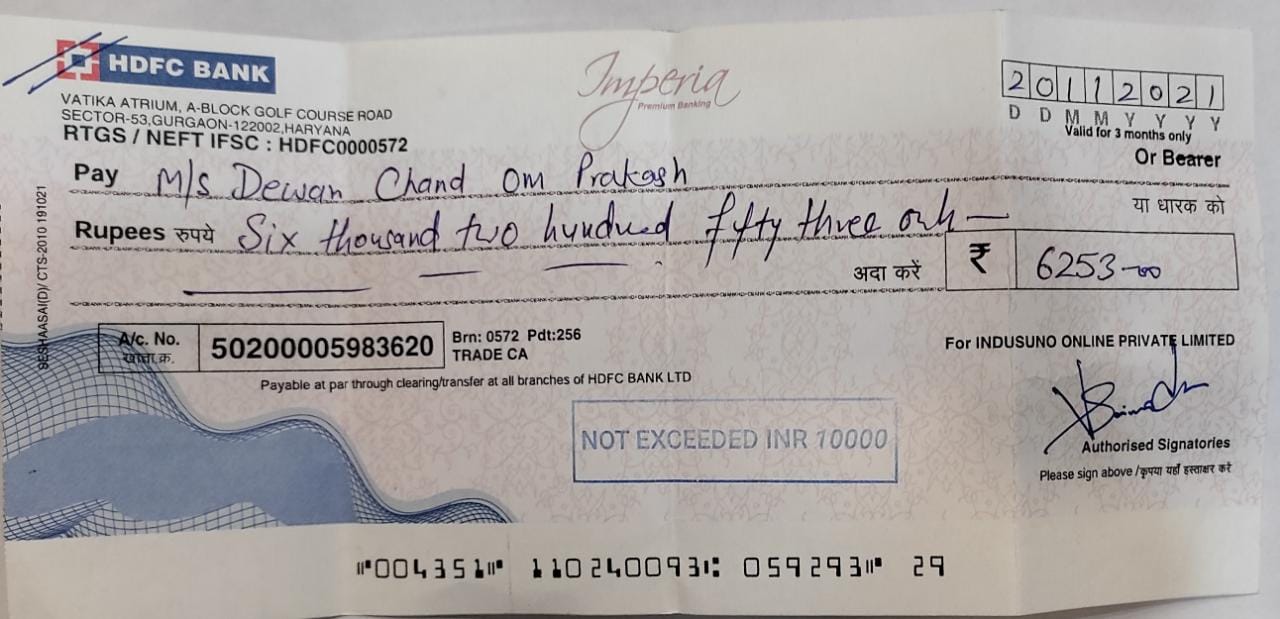 HDFC BANK
Imperia
Premium Banking
VATIKA ATRIUM, A-BLOCK GOLF COURSE ROAD
SECTOR-53,GURGAON-122002,HARYANA
RTGS / NEFT IFSC : HDFC0000572
20112021
D D M M Y Y Y Y
Valid for 3 months only
Pay M/s Dewan Chand Om Prakash Or Bearer
या धारक को
Rupees रुपये Six thousand two hundred fifty three only
अदा करें ₹ 6253-00
SESHAASAI(D)/ CTS-2010 191021
A/c. No. 50200005983620 Brn: 0572 Pdt:256
खाता क्र. TRADE CA
For INDUSUNO ONLINE PRIVATE LIMITED
Payable at par through clearing/transfer at all branches of HDFC BANK LTD
NOT EXCEEDED INR 10000
Authorised Signatories
Please sign above /कृपया यहाँ हस्ताक्षर करें
⑈004351⑈ 110240093⑆ 059293⑈ 29